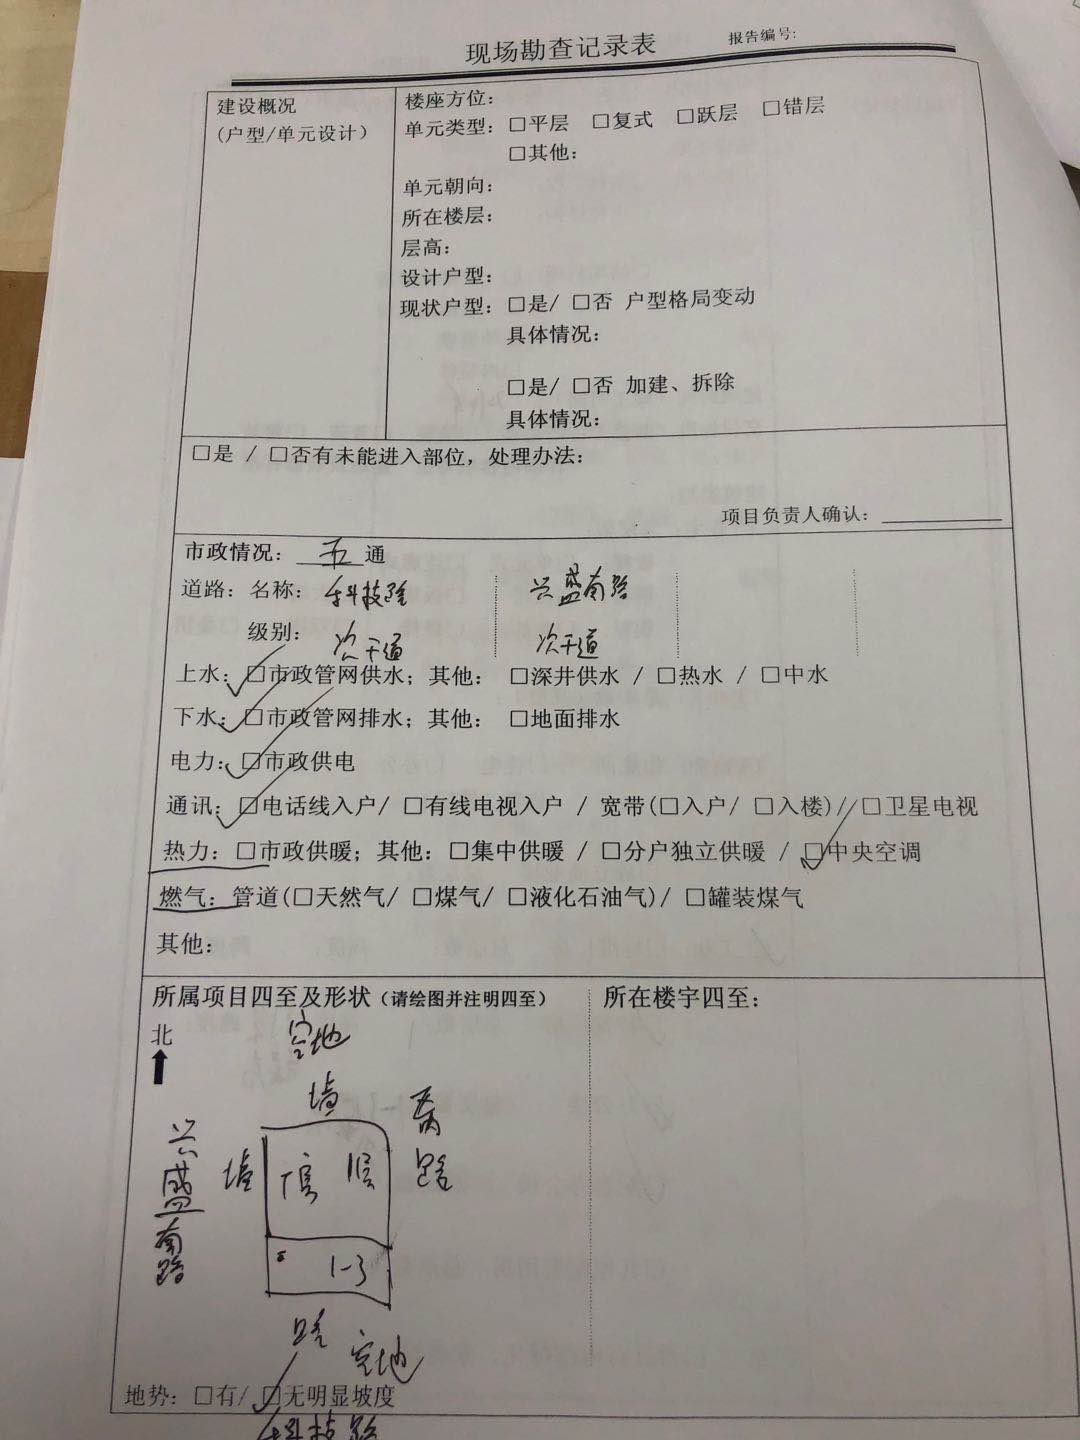 现场勘查记录表
报告编号:
建设概况
(户型/单元设计)
楼座方位:
单元类型: □平层 □复式 □跃层 □错层
□其他:
单元朝向:
所在楼层:
层高:
设计户型:
现状户型: □是/ □否 户型格局变动
具体情况:
□是/ □否 加建、拆除
具体情况:
□是 / □否有未能进入部位, 处理办法:
项目负责人确认:
市政情况: 五 通
道路: 名称: 科技路 兴盛南路
级别: 次干道 次干道
上水: ☑市政管网供水; 其他: □深井供水 / □热水 / □中水
下水: ☑市政管网排水; 其他: □地面排水
电力: ☑市政供电
通讯: ☑电话线入户/ □有线电视入户 / 宽带(□入户/ □入楼)/ □卫星电视
热力: □市政供暖; 其他: □集中供暖 / □分户独立供暖 / ☑中央空调
燃气: 管道(□天然气/ □煤气/ □液化石油气)/ □罐装煤气
其他:
所属项目四至及形状 (请绘图并注明四至)
所在楼宇四至:
北
空地
墙
兴盛南路
墙
路
1-3
路
空地
地势: □有/ ☑无明显坡度
科技路